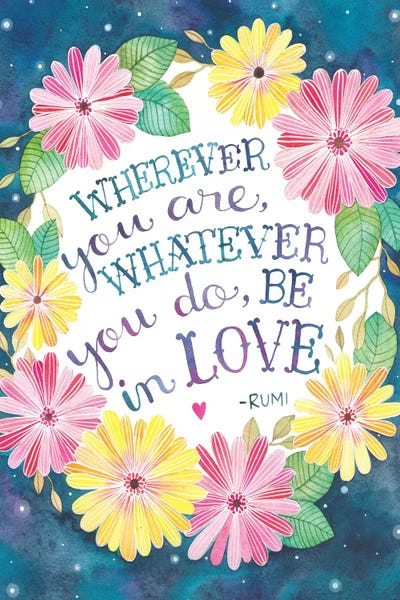 WHEREVER
you are,
WHATEVER
you do, BE
in LOVE
-RUMI